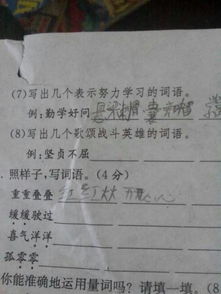 (7)写出几个表示努力学习的词语。
例:勤学好问
(8)写出几个歌颂战斗英雄的词语。
例:坚贞不屈
.照样子,写词语。(4分)
重重叠叠 红红火火 开开心心
缓缓驶过
喜气洋洋
孤零零
你能准确地运用量词吗?请填一填。(8